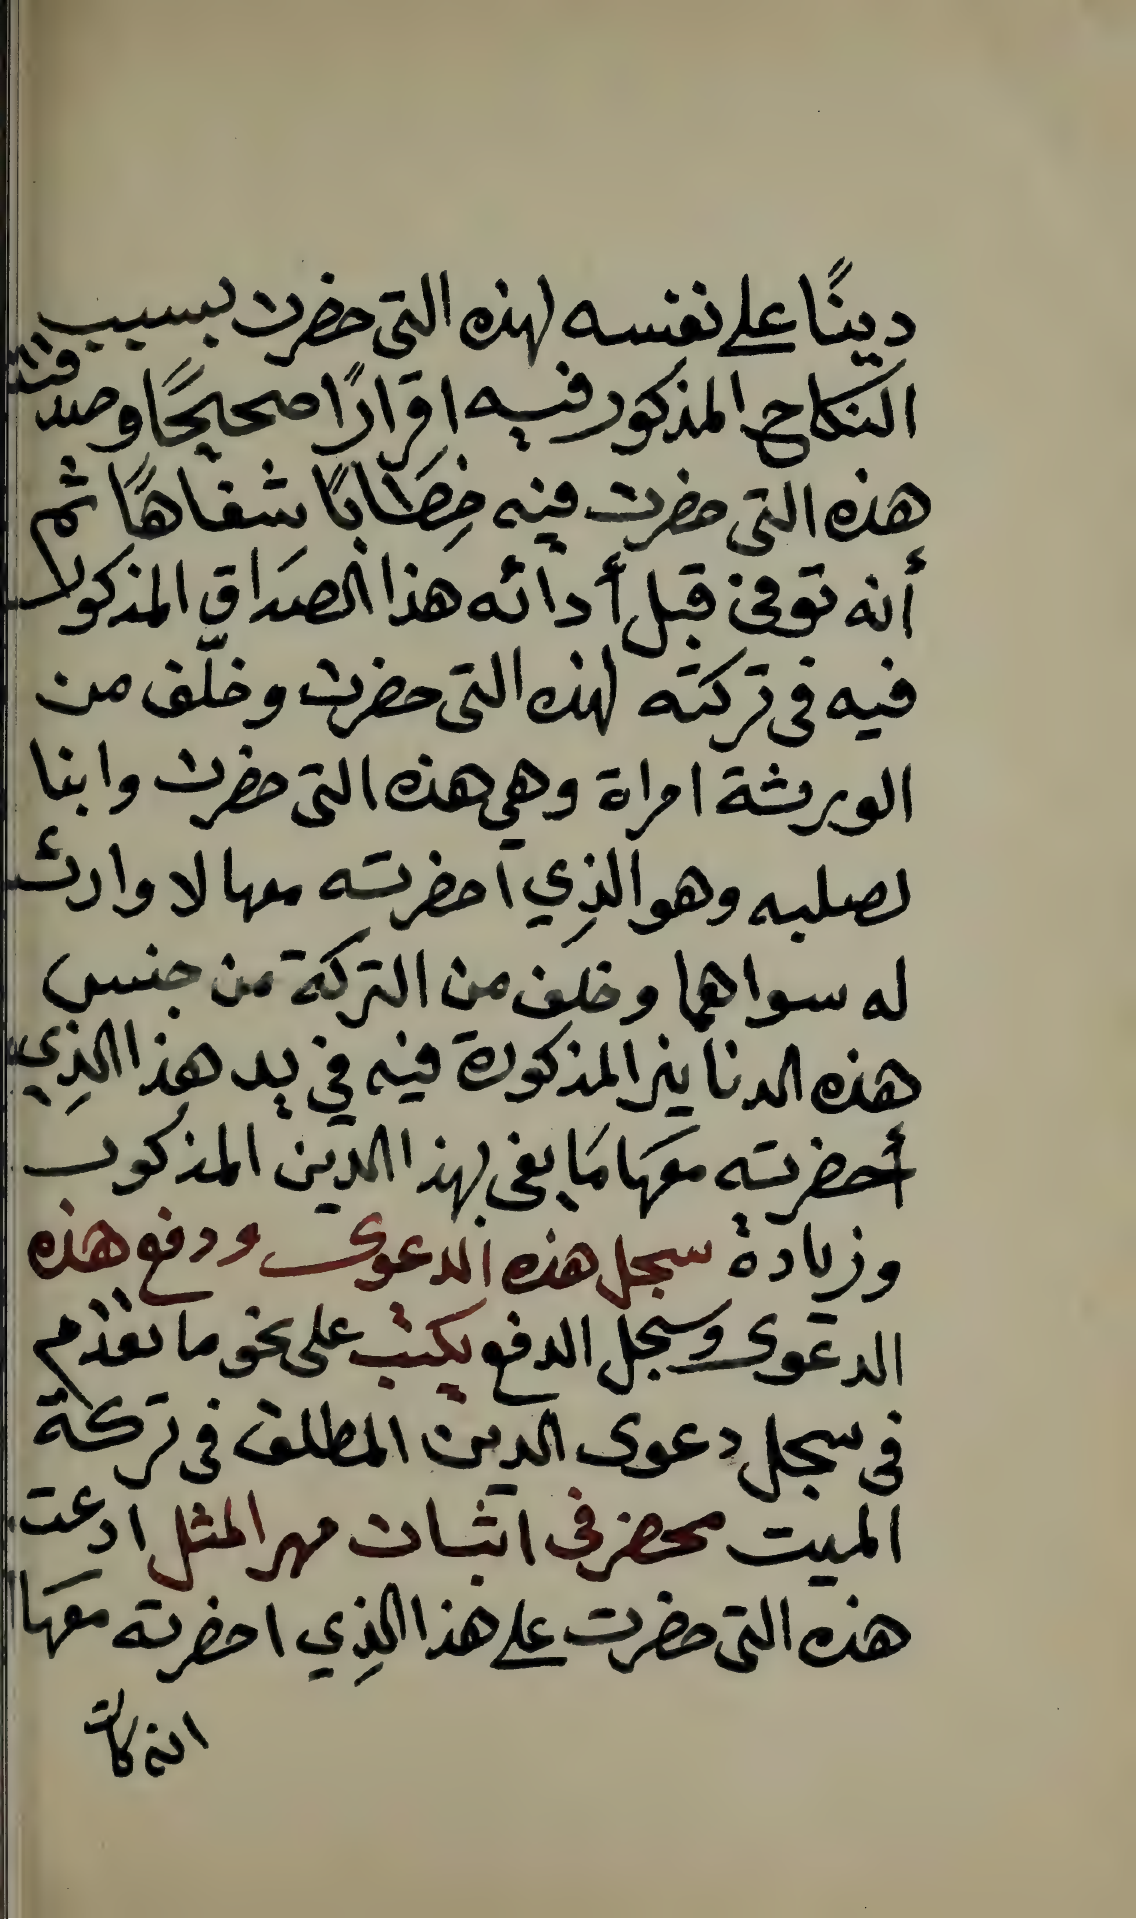 دينًا على نفسه لهذه التي حضرت بسبب
النكاح المذكور فيه اقرارًا صحيحًا وصدقته
هذه التي حضرت فيه خِطَابًا شفاهًا ثم
أنه توفى قبل أدائه هذا الصَداق المذكور
فيه في تركته لهذه التي حضرت وخلّف من
الورثة امراة وهي هذه التي حضرت وابنا
لصلبه وهو الذِي احضرته معها لا وارث
له سواهما وخلف من التركة من جنس
هذه الدنانير المذكورة فيه في يد هذا الذِي
أحضرته معَها مَا يفى بهذا الدين المذكور
وزيادة سجل هذه الدعوى ودفع هذه
الدعوى وسجل الدفع يكتب على نحو ما تقدم
في سجل دعوى الدين المطلق في تركة
الميت محضر في اثبات مهر المثل ادعت
هذه التي حضرت على هذا الذِي احضرته معَها
انه كان